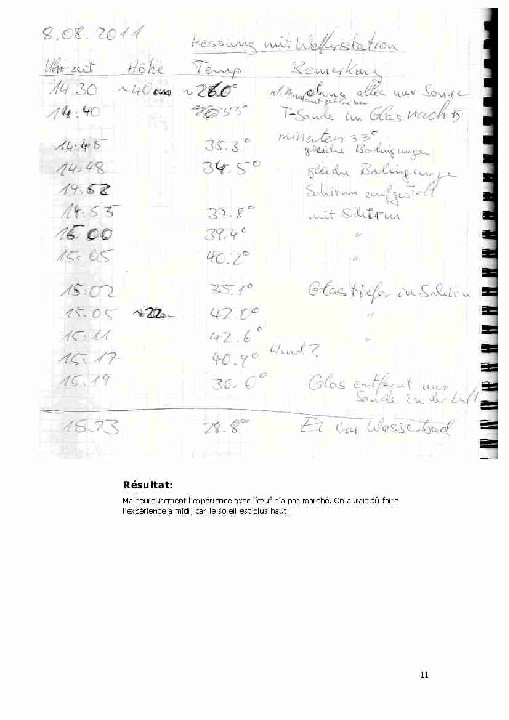 8.08.2011
Messung mit Wetterstation
Uhrzeit Höhe Temp. Bemerkung
14.30 ~40 ohne alles nur Sonde
14.40 T-Sonde im Glas nach 15
minuten 33°
14.45 35.8° gleiche Bedingungen
14.48 34.5° gleiche Bedingungen
14.52 Schirm aufgestellt
14.55 37.8° mit Schirm
15.00 39.4° "
15.05 40.2° "
15.02 35.1° Glas tiefer in Schirm
15.05 ~22cm 42.0° "
15.11 42.6° "
15.17 40.9° Wind?
15.19 36.0° Glas entfernt nur
Sonde in der Luft
15.23 28.8° Ei im Wasserbad
Résultat:
Malheureusement l'expérience avec l'œuf n'a pas marché. On aurait dû faire
l'expérience à midi, car le soleil est plus haut.
11